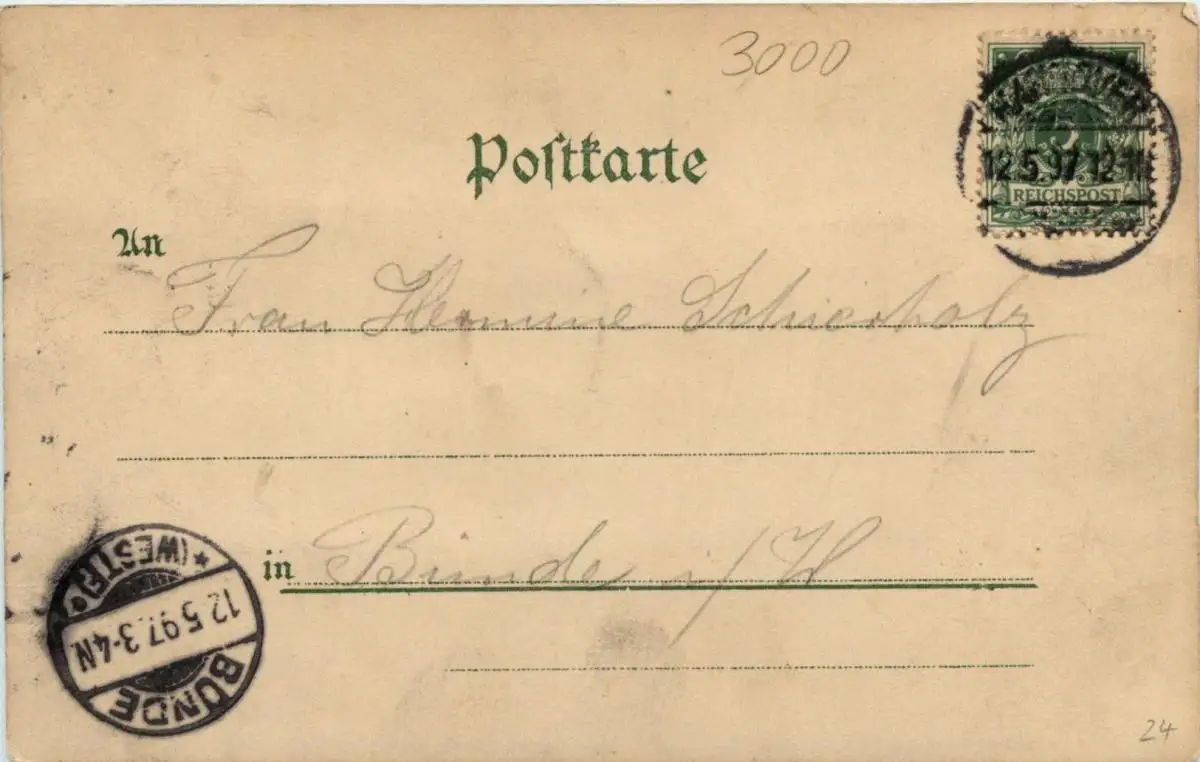 3000
HANNOVER
5
12.5.97.12-1N
REICHSPOST
Postkarte
An
Frau Hermine Schierholz
in Bünde i/W
* (WESTF.) *
12.5.97.3-4N
BÜNDE
24